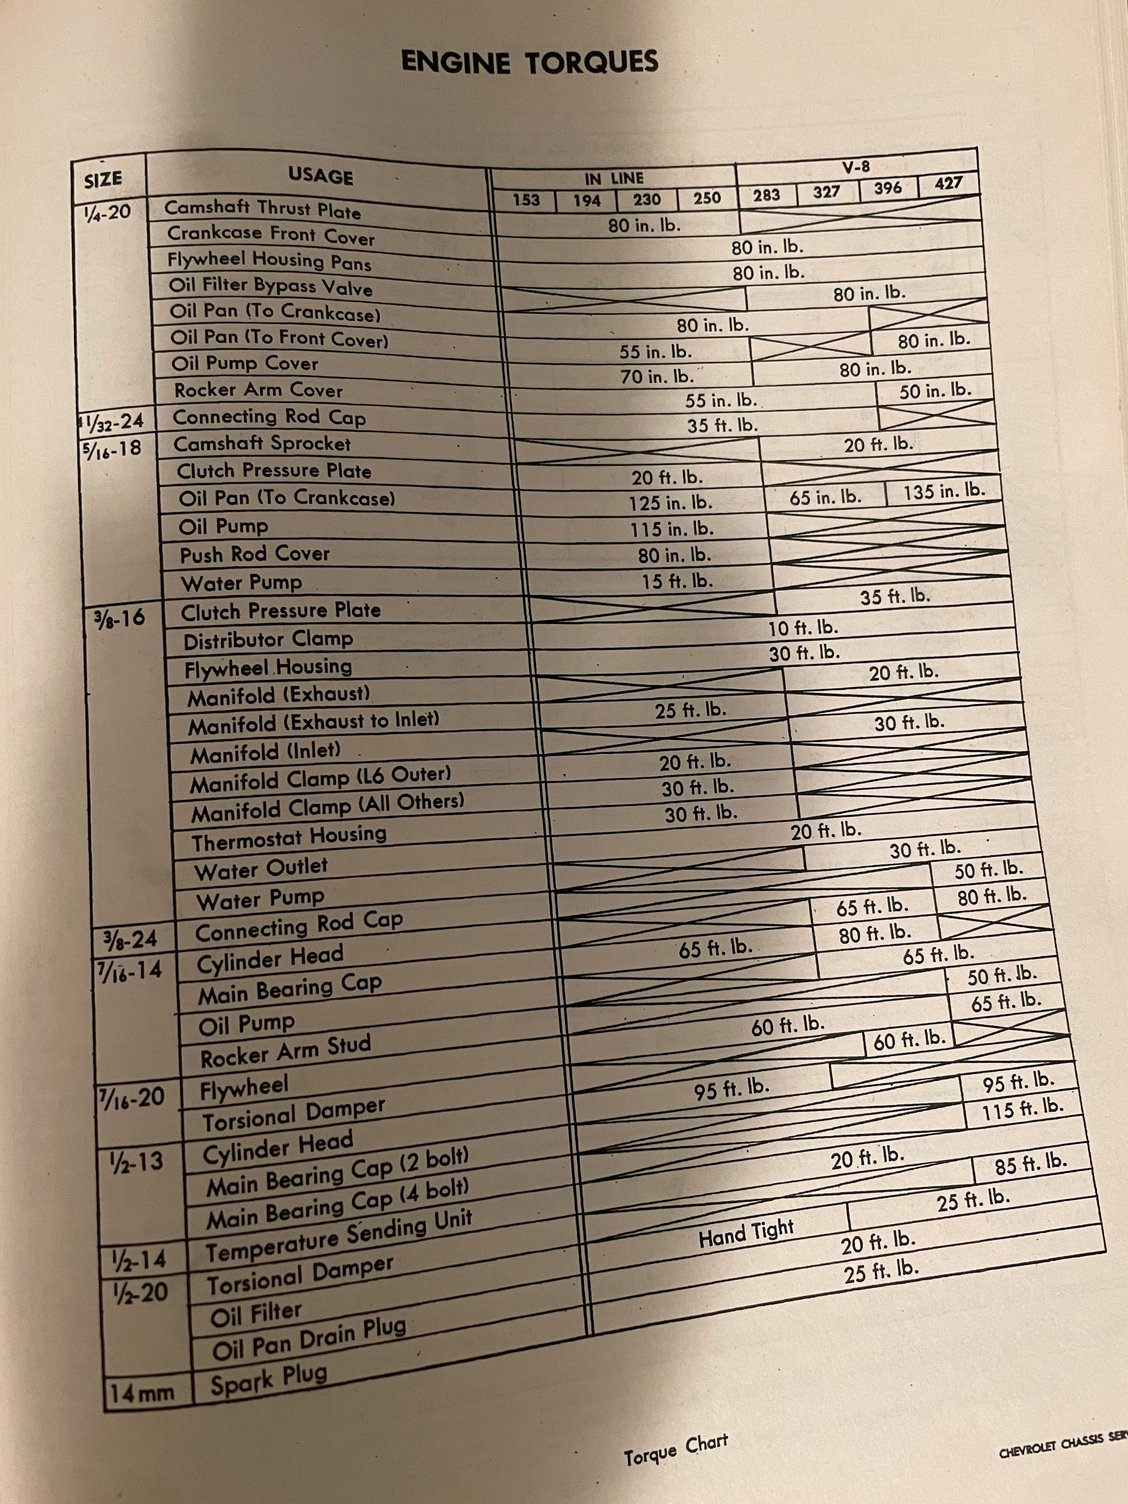 ENGINE TORQUES
SIZE USAGE IN LINE V-8
153 194 230 250 283 327 396 427
1/4-20 Camshaft Thrust Plate 80 in. lb.
Crankcase Front Cover 80 in. lb.
Flywheel Housing Pans 80 in. lb.
Oil Filter Bypass Valve 80 in. lb.
Oil Pan (To Crankcase) 80 in. lb.
Oil Pan (To Front Cover) 55 in. lb. 80 in. lb.
Oil Pump Cover 70 in. lb. 80 in. lb.
Rocker Arm Cover 55 in. lb. 50 in. lb.
11/32-24 Connecting Rod Cap 35 ft. lb.
5/16-18 Camshaft Sprocket 20 ft. lb.
Clutch Pressure Plate 20 ft. lb.
Oil Pan (To Crankcase) 125 in. lb. 65 in. lb. 135 in. lb.
Oil Pump 115 in. lb.
Push Rod Cover 80 in. lb.
Water Pump 15 ft. lb.
3/8-16 Clutch Pressure Plate 35 ft. lb.
Distributor Clamp 10 ft. lb.
Flywheel Housing 30 ft. lb.
Manifold (Exhaust) 20 ft. lb.
Manifold (Exhaust to Inlet) 25 ft. lb.
Manifold (Inlet) 30 ft. lb.
Manifold Clamp (L6 Outer) 20 ft. lb.
Manifold Clamp (All Others) 30 ft. lb.
Thermostat Housing 30 ft. lb.
Water Outlet 20 ft. lb.
Water Pump 30 ft. lb.
3/8-24 Connecting Rod Cap 50 ft. lb.
7/16-14 Cylinder Head 65 ft. lb. 80 ft. lb.
Main Bearing Cap 65 ft. lb. 80 ft. lb.
Oil Pump 65 ft. lb.
Rocker Arm Stud 50 ft. lb.
7/16-20 Flywheel 60 ft. lb. 65 ft. lb.
Torsional Damper 60 ft. lb.
1/2-13 Cylinder Head 95 ft. lb.
Main Bearing Cap (2 bolt) 95 ft. lb.
Main Bearing Cap (4 bolt) 115 ft. lb.
1/2-14 Temperature Sending Unit 20 ft. lb.
1/2-20 Torsional Damper 85 ft. lb.
Oil Filter Hand Tight 25 ft. lb.
Oil Pan Drain Plug 20 ft. lb.
14mm Spark Plug 25 ft. lb.
Torque Chart
CHEVROLET CHASSIS